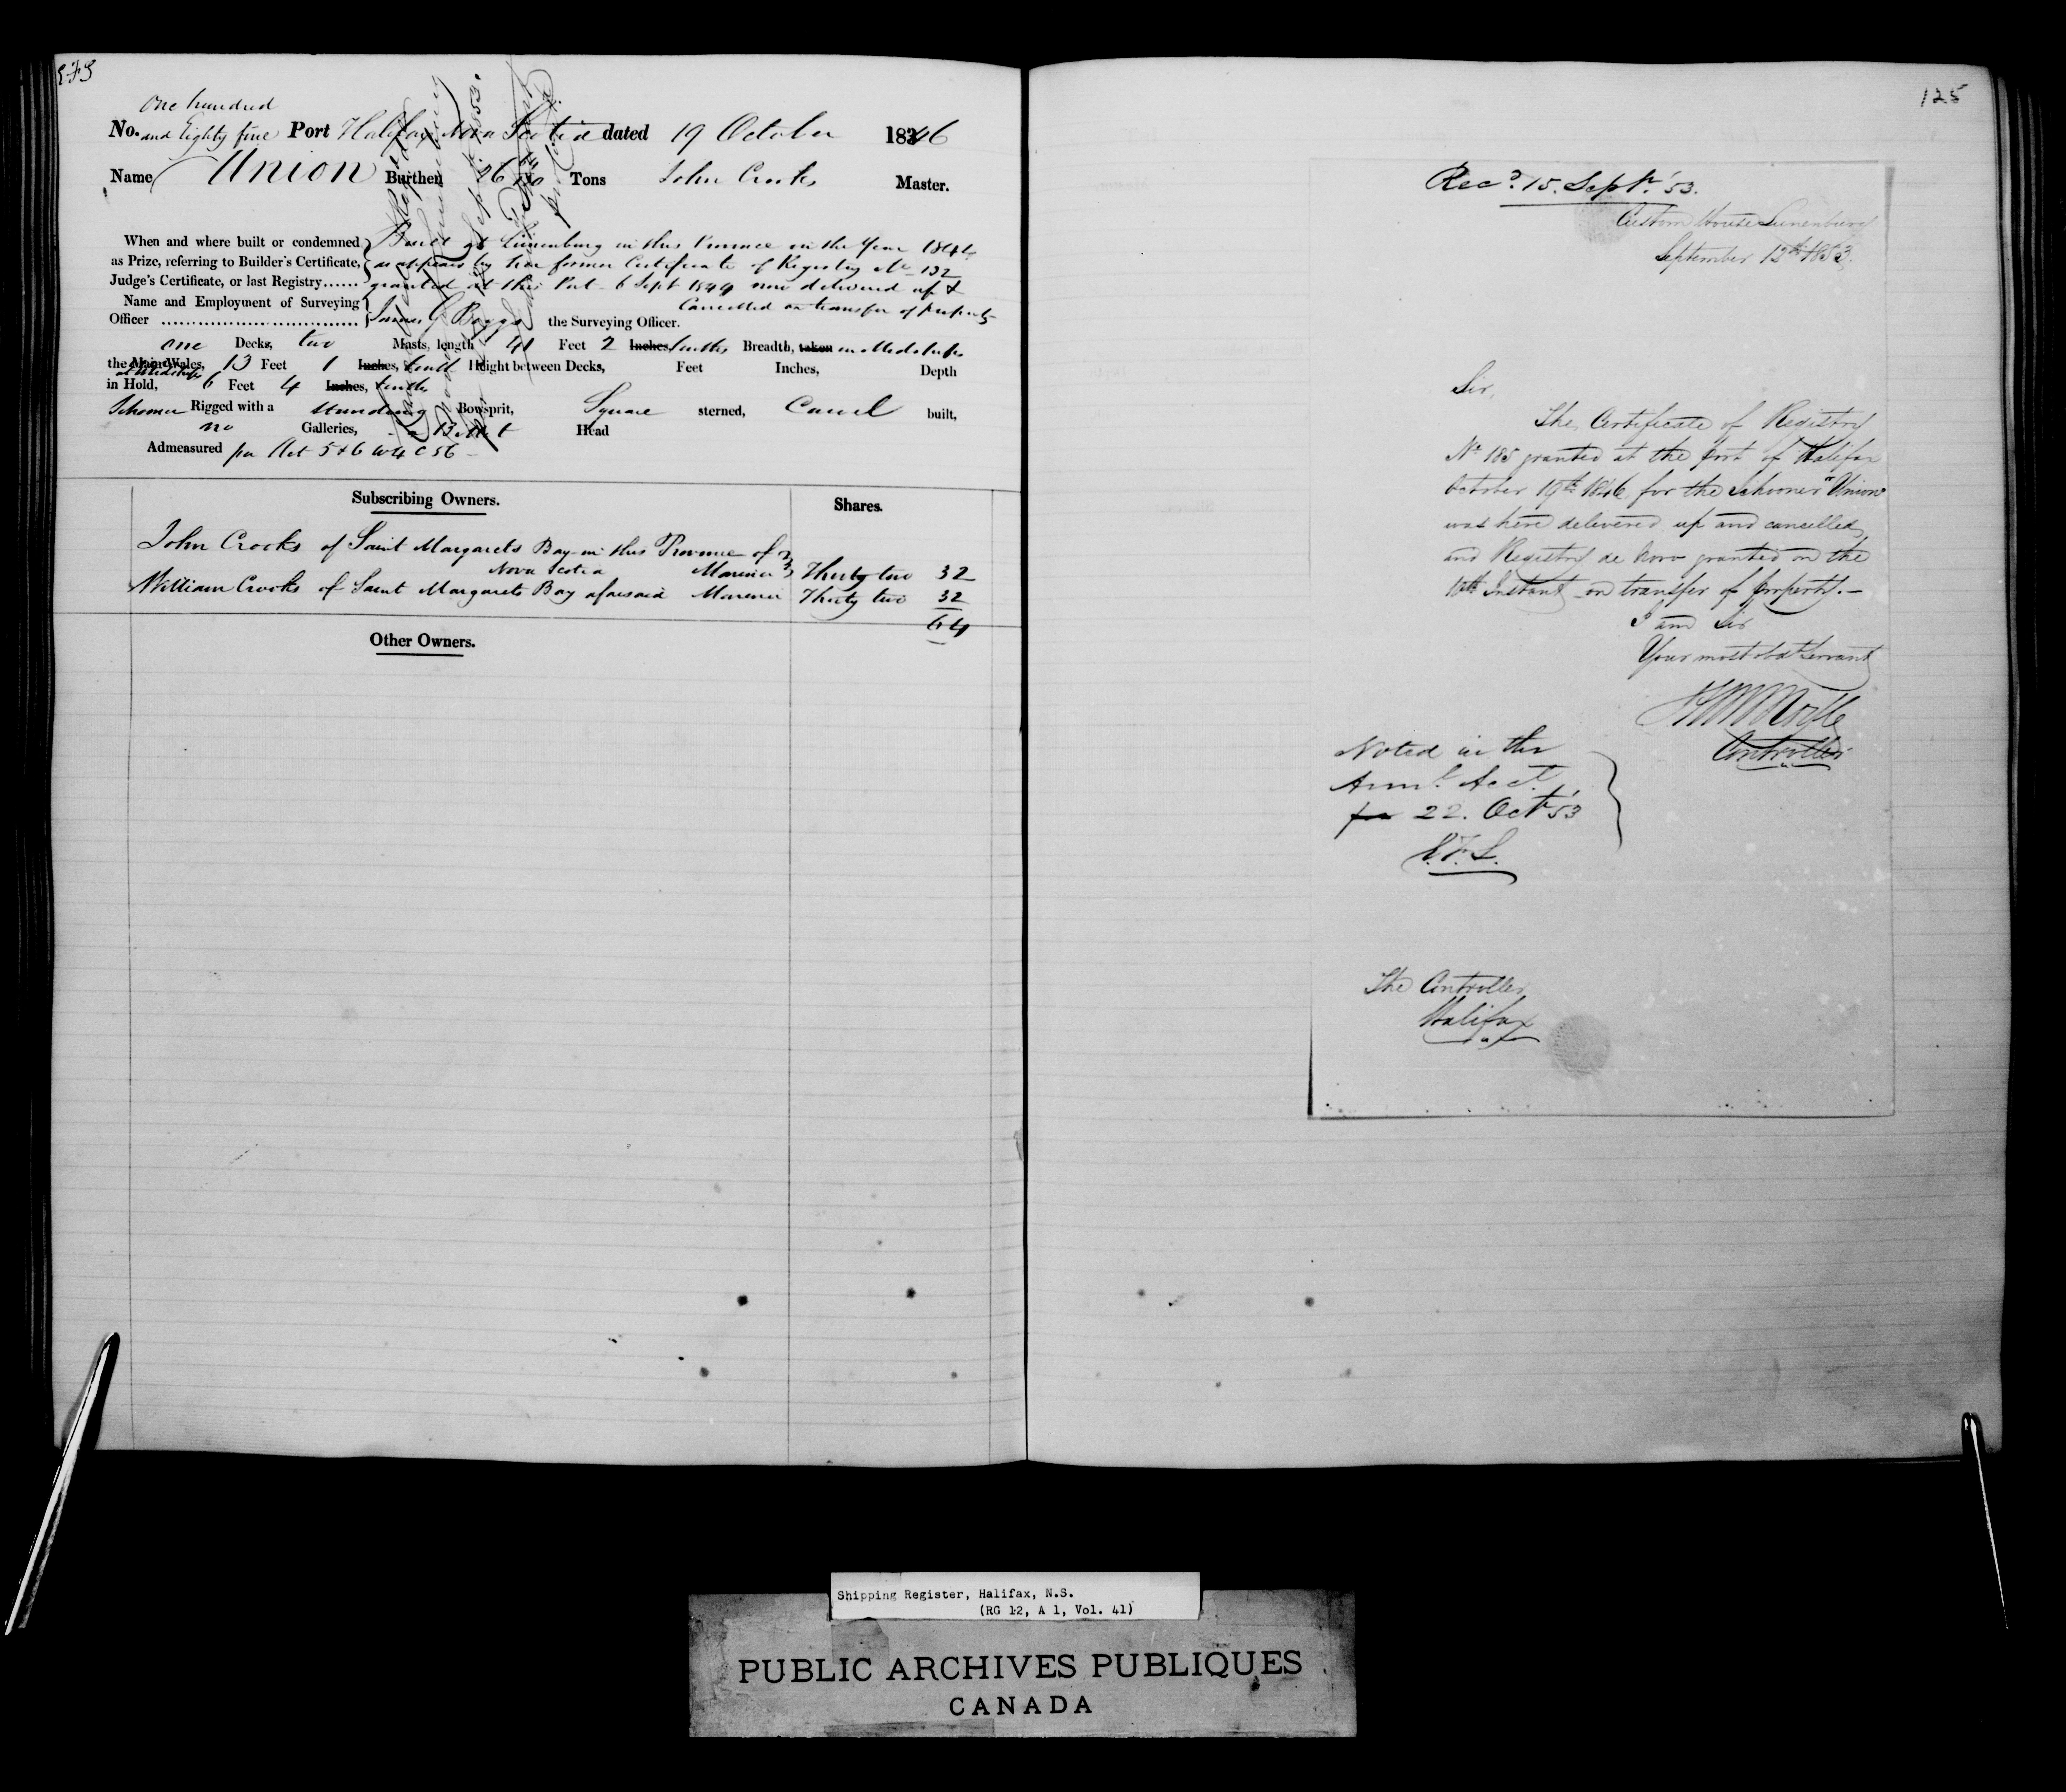 One hundred
No. and Eighty five Port Halifax Nova Scotia dated 19 October 1846
Name Union Burthen 26 Tons John Crooks Master.
When and where built or condemned as Prize, referring to Builder's Certificate, Judge's Certificate, or last Registry......
Built at Lunenburg in this Province in the Year 1844
as appears by her former Certificate of Registry No 132
granted at this Port 6 Sept 1844 now delivered up &
Cancelled on transfer of property
Name and Employment of Surveying Officer
James G Boggs the Surveying Officer.
one Decks, two Masts, length 41 Feet 2 Inches tenths Breadth, taken in Midships
the Main Wales, 13 Feet 1 Inches, tenth Height between Decks, Feet Inches, Depth
at Midships
in Hold, 6 Feet 4 Inches, tenths
Schooner Rigged with a standing Bowsprit, Square sterned, Carvel built,
no Galleries, Head
Admeasured per Act 5 & 6 W 4 C 56
Subscribing Owners. Shares.
John Crooks of Saint Margarets Bay in this Province of
Nova Scotia Mariner Thirty two 32
William Crooks of Saint Margarets Bay aforesaid Mariner Thirty two 32
64
Other Owners.
125
Recd. 15. Sept. '53.
Custom House Lunenburg
September 12th 1853.
Sir,
The Certificate of Registry
No 185 granted at the port of Halifax
October 19th 1846 for the Schooner "Union"
was here delivered up and cancelled,
and Registry de Novo granted on the
10th Instant on transfer of property.—
I am Sir
Your most obdt Servant
Controller
Noted in the
Acct.
for 22. Oct '53
E.F.S.
The Controller
Halifax
Shipping Register, Halifax, N.S.
(RG 12, A 1, Vol. 41)
PUBLIC ARCHIVES PUBLIQUES
CANADA